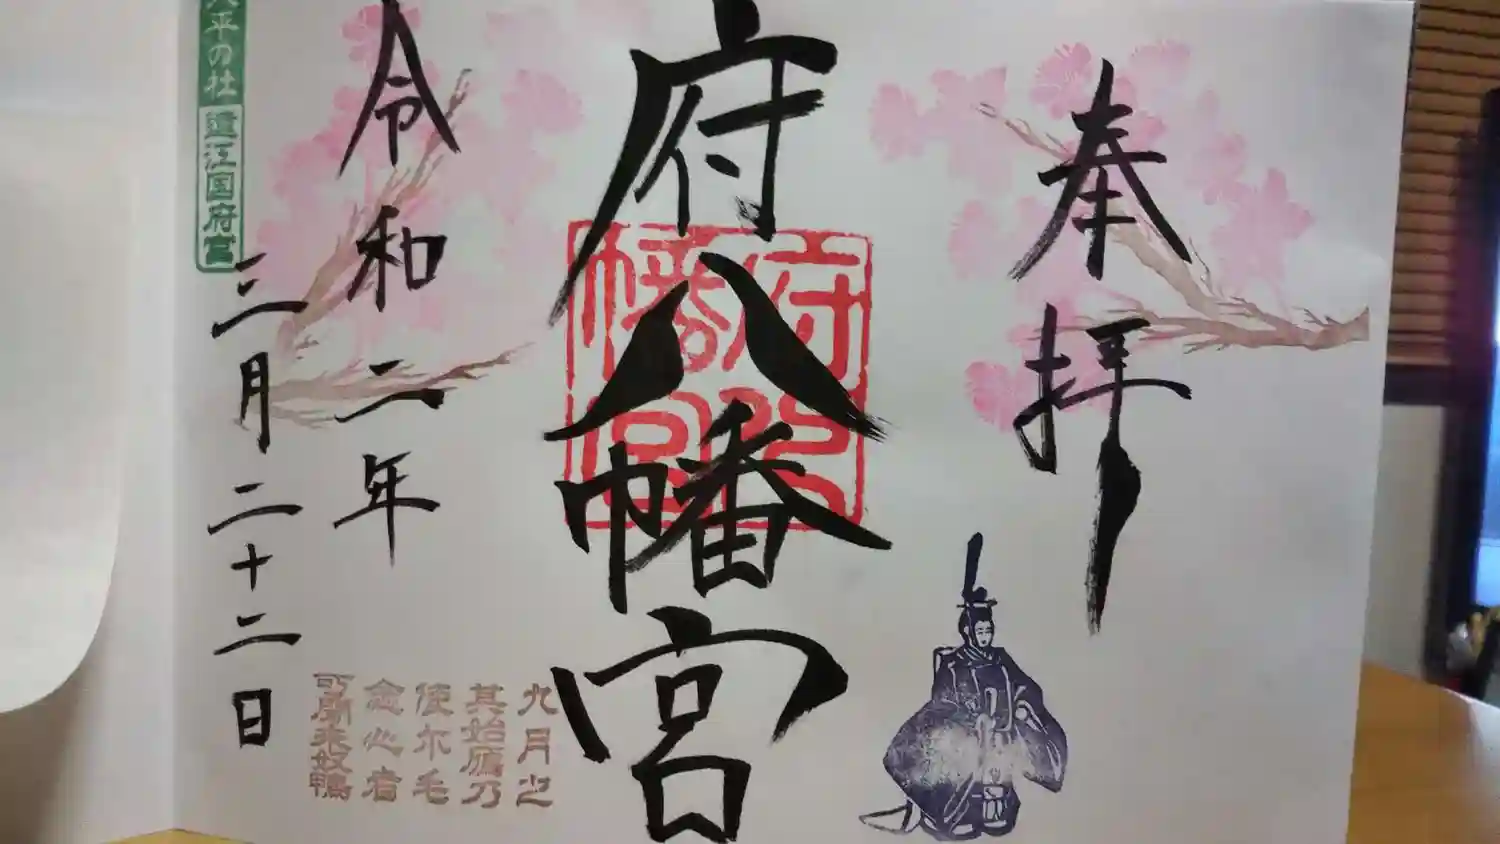 奉拝
府八幡宮
府八幡宮
九月之
其始鴈乃
使尓毛
念心者
可聞来奴鴨
令和二年
三月二十二日
平の社
遠江国府宮